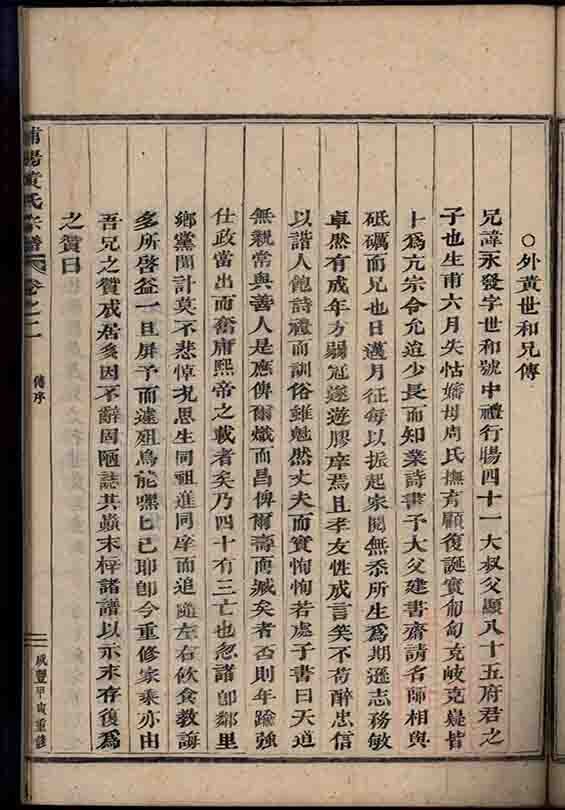 ○外黃世和兄傳
兄諱永發字世和號中禮行暘四十一大叔父顯八十五府君之
子也生甫六月失怙嬌母周氏撫育顧復誕實匍匐克岐克嶷皆
卜爲亢宗令允迨少長而知業詩書予大父建書齋請名師相與
砥礪而兄也日邁月征每以振起家聞無忝所生爲期遜志務敏
卓然有成年方弱冠遂遊膠庠焉且孝友性成言笑不苟醉忠信
以諧人飽詩禮而訓俗雖魁然丈夫而實恂恂若處子書曰天道
無親常與善人是應俾爾熾而昌俾爾壽而臧矣者否則年踰強
仕政當出而奮庸熙帝之載者矣乃四十有三亡也忽諸卽鄰里
鄉黨聞訃莫不悲悼况思生同祖進同庠而追隨左右飲食教誨
多所啓益一旦屏予而遠殂烏能嘿已耶卽今重修家乘亦由
吾兄之贊成居多因不辭固陋誌其巔末梓諸譜以示末存復爲
之贊曰
浦陽黃氏宗譜 卷之二 傳序 咸豐甲寅重修